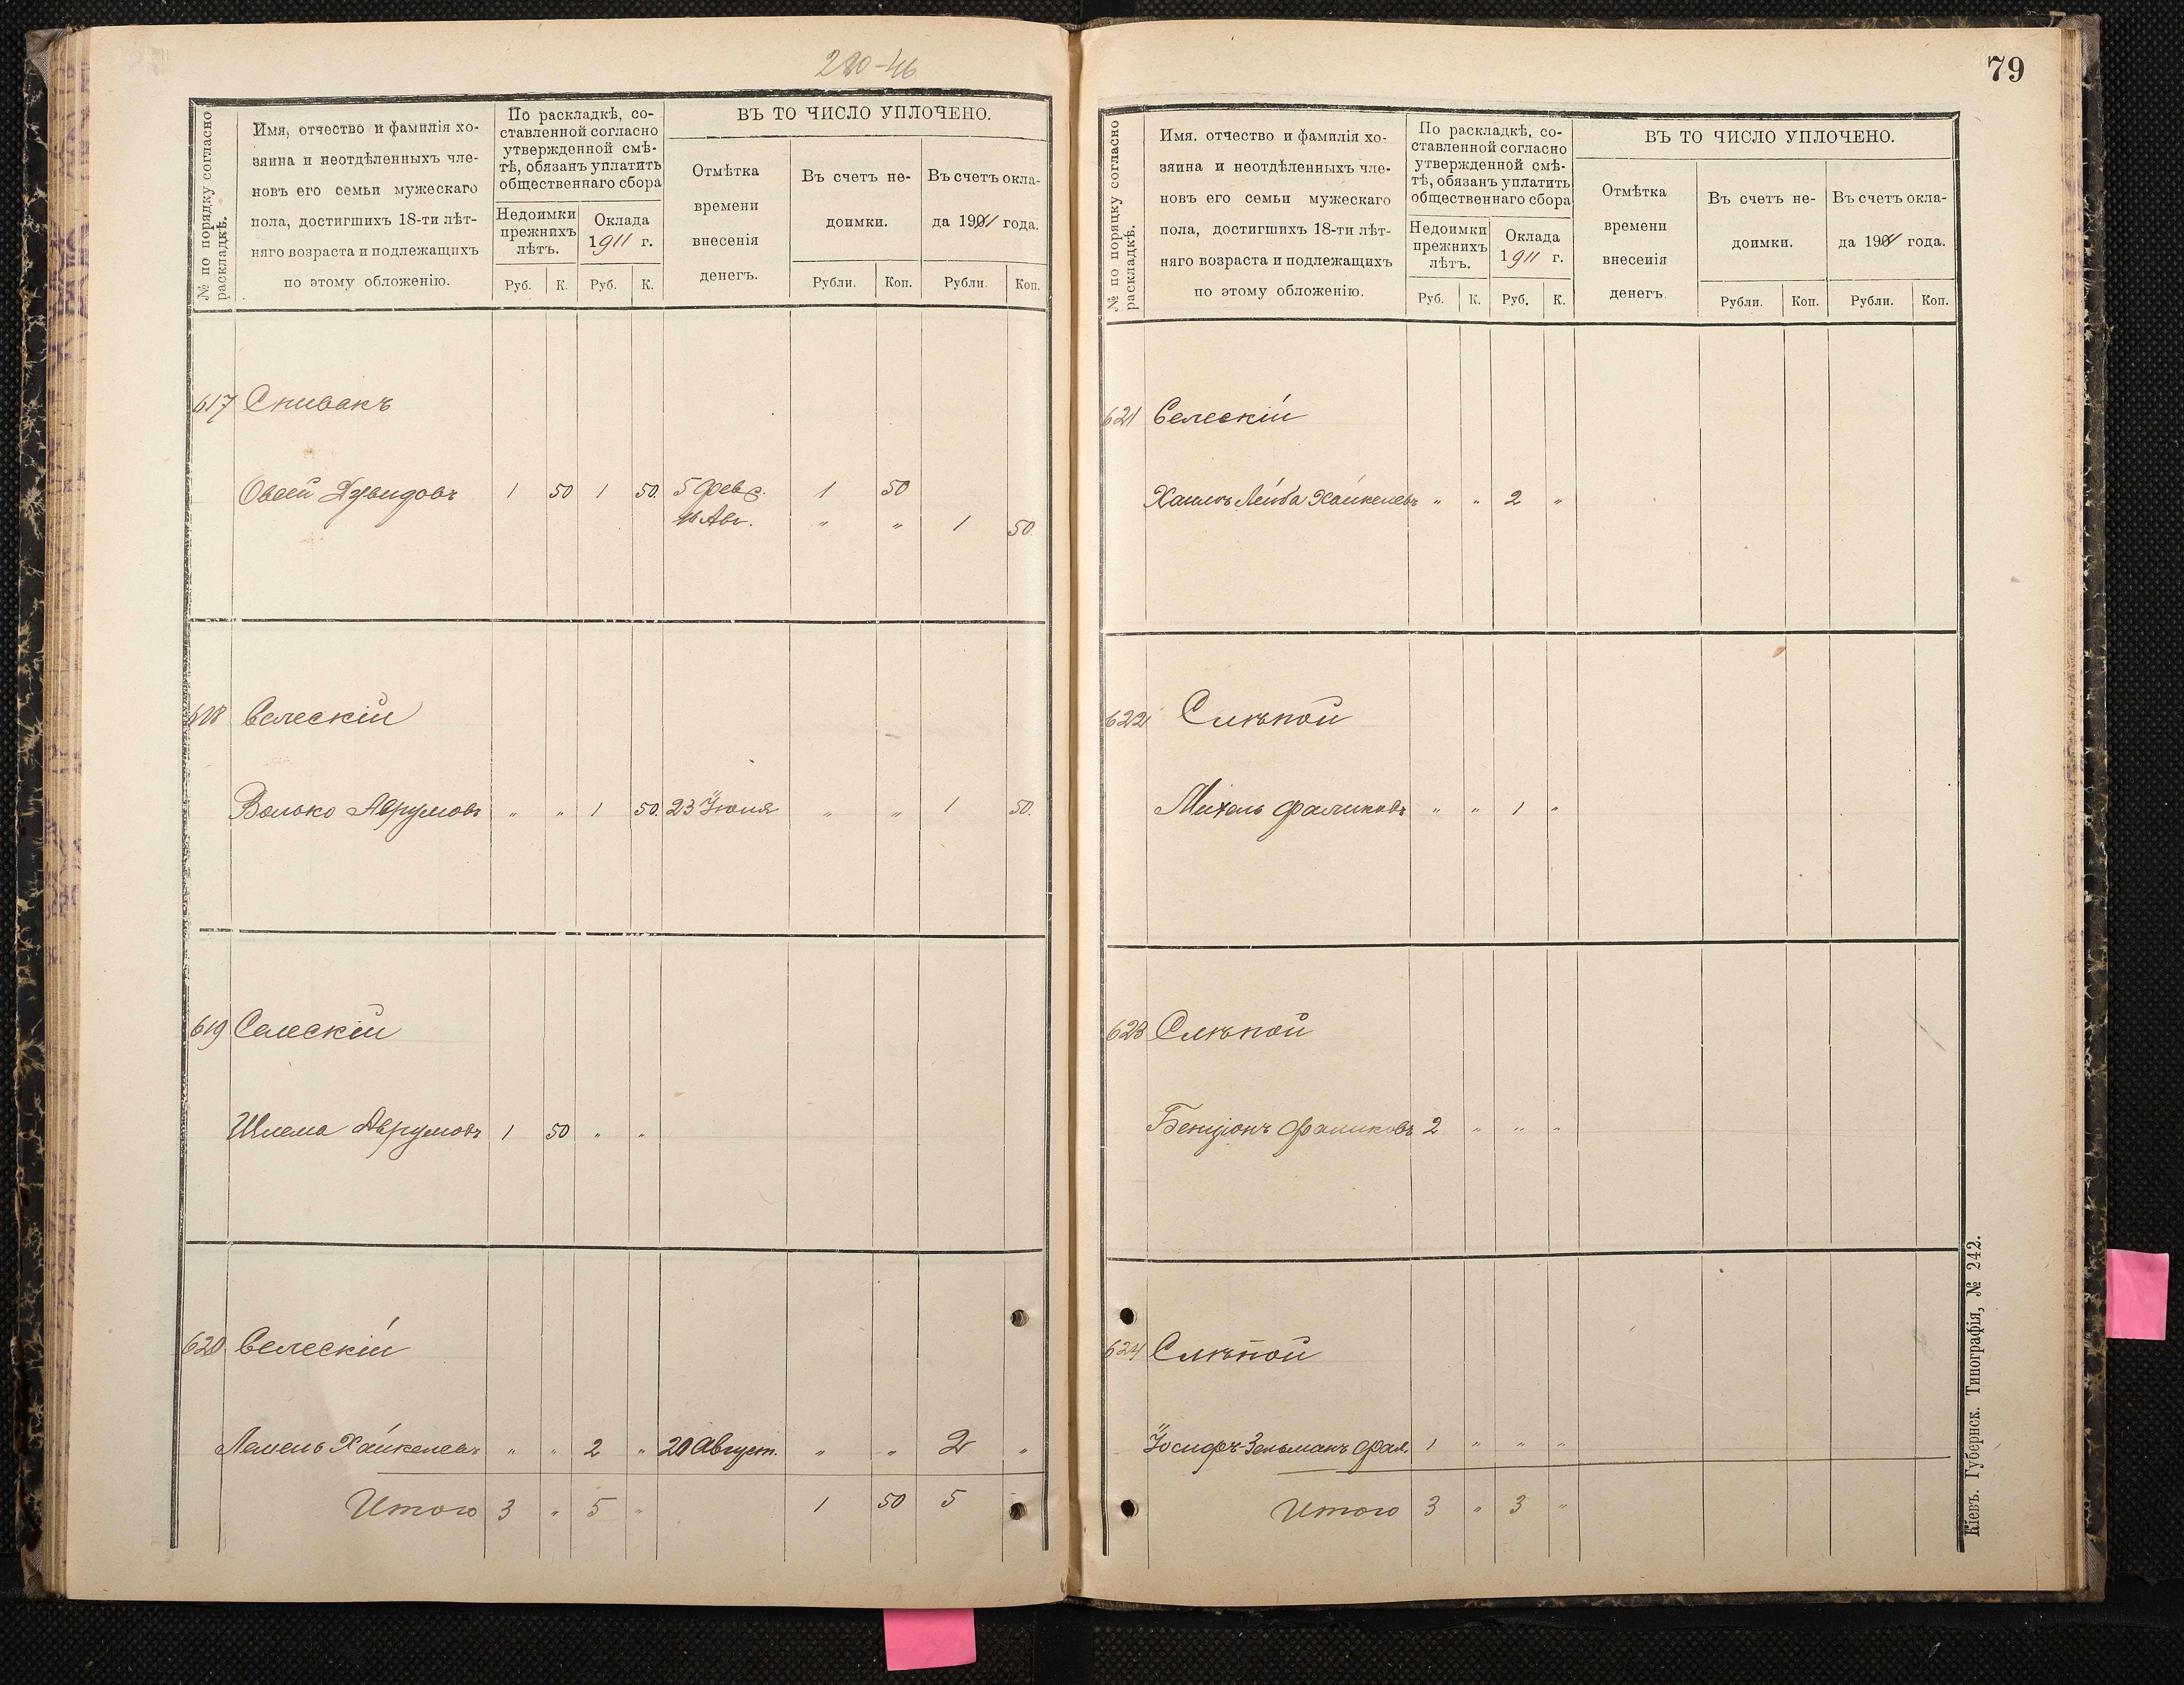 280-46
№ по порядку согласно раскладкѣ.
Имя, отчество и фамилія хо-
зяина и неотдѣленныхъ чле-
новъ его семьи мужескаго
пола, достигшихъ 18-ти лѣт-
няго возраста и подлежащихъ
по этому обложенію.
По раскладкѣ, со-
ставленной согласно
утвержденной смѣ-
тѣ, обязанъ уплатить
общественнаго сбора
Недоимки
прежнихъ
лѣтъ.
Оклада
1911 г.
Руб. К. Руб. К.
ВЪ ТО ЧИСЛО УПЛОЧЕНО.
Отмѣтка
времени
внесенія
денегъ.
Въ счетъ не-
доимки.
Въ счетъ окла-
да 1911 года.
Рубли. Коп. Рубли. Коп.
617 Спивакъ
Овсей Дувидовъ 1 50 1 50. 5 Февр. 1 50
16 Авг. " " 1 50.
618 Селескій
Волько Аврумовъ " " 1 50. 23 Іюня " " 1 50.
619 Селескій
Шлема Аврумовъ 1 50 " "
620 Селескій
Лемель Хайкелевъ " " 2 " 20 Август. " " 2 "
Итого 3 " 5 " 1 50 5
79
№ по порядку согласно раскладкѣ.
Имя, отчество и фамилія хо-
зяина и неотдѣленныхъ чле-
новъ его семьи мужескаго
пола, достигшихъ 18-ти лѣт-
няго возраста и подлежащихъ
по этому обложенію.
По раскладкѣ, со-
ставленной согласно
утвержденной смѣ-
тѣ, обязанъ уплатить
общественнаго сбора
Недоимки
прежнихъ
лѣтъ.
Оклада
1911 г.
Руб. К. Руб. К.
ВЪ ТО ЧИСЛО УПЛОЧЕНО.
Отмѣтка
времени
внесенія
денегъ.
Въ счетъ не-
доимки.
Въ счетъ окла-
да 1911 года.
Рубли. Коп. Рубли. Коп.
621 Селескій
Лейба Хайкелевъ " " 2 "
622 Слѣпой
Михель Фаликовъ " " 1 "
623 Слѣпой
Бенціонъ Фаликовъ 2 " " "
624 Слѣпой
Іосифъ-Зельманъ Фал. 1 " " "
Итого 3 " 3 "
Кіевъ. Губернск. Типографія, № 242.